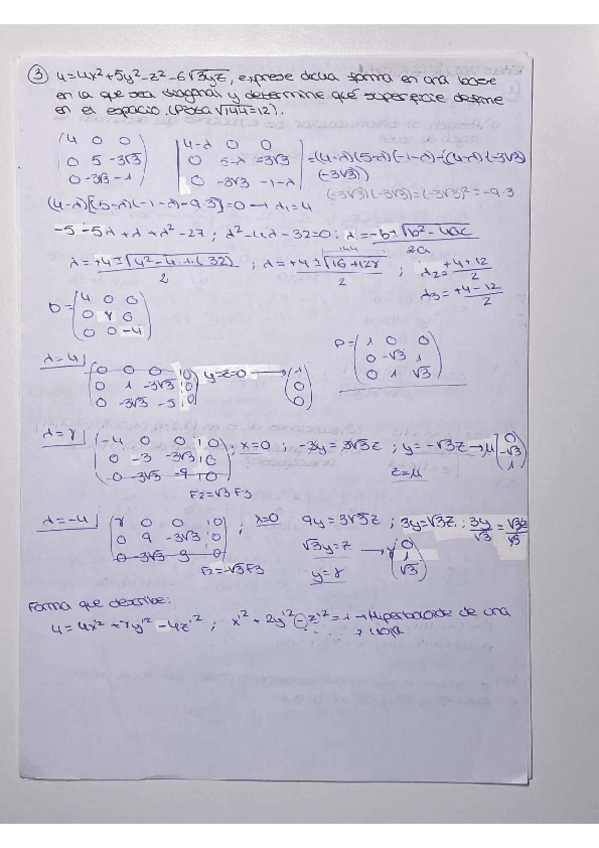 ③ 4=4x²+5y²-z²-6√3yz, exprese dicha forma en una base
en la que sea diagonal y determine qué superficie define
en el espacio. (Pista √144=12).
(4 0 0 |4-λ 0 0
0 5 -3√3 0 5-λ -3√3 =(4-λ)(5-λ)(-1-λ)-(4-λ)(-3√3)
0 -3√3 -1) 0 -3√3 -1-λ| (-3√3))
(-3√3)(-3√3)=(-3√3)²=-9·3
(4-λ)[(5-λ)(-1-λ)-9·3]=0 → λ₁=4
-5-5λ+λ+λ²-27; λ²-4λ-32=0; λ=-b±√b²-4ac
2a
λ=+4±√4²-4·1·(-32) ; λ=+4±√16+128 ; λ₂=+4+12
2 144 2 2
λ₃=+4-12
2
D=(4 0 0
0 8 0
0 0 -4)
P=(1 0 0
0 -√3 1
0 1 √3)
λ=4
(0 0 0 0
0 1 -3√3 0
0 -3√3 -5 0) y=z=0 → (1
0
0)
λ=8
(-4 0 0 0
0 -3 -3√3 0
0 -3√3 -9 0) ; x=0 ; -3y=3√3z ; y=-√3z → μ(0
-√3
1)
z=μ
F2=√3F3
λ=-4
(8 0 0 0
0 9 -3√3 0
0 -3√3 3 0) ; x=0 9y=3√3z ; 3y=√3z ; 3y/√3=√3z/√3
√3y=z → γ(0
1
√3)
y=γ
F2=-√3F3
Forma que describe:
4=4x²+8y'²-4z'² ; x²+2y'²-z'²=1 → Hiperboloide de una
→ hoja